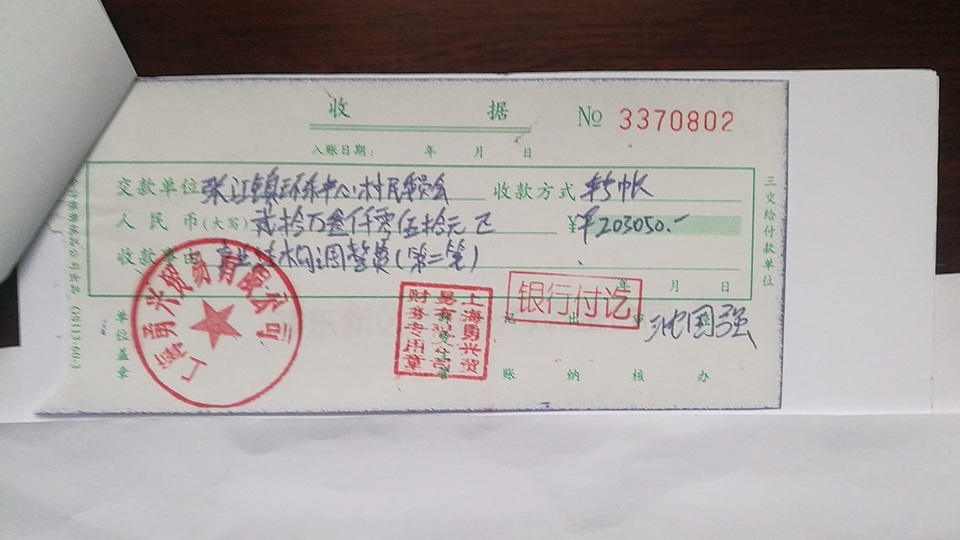 收 据 № 3370802
入账日期： 年 月 日
交款单位 张江镇环东中心村民委员会 收款方式 转帐
人民币(大写) 贰拾万叁仟零伍拾元正 ¥ 203050.-
收款事由 产业结构调整费(第二笔)
年 月 日
三交给付款单位
银行付讫
上海勇兴贸易有限公司
财务专用章
沈国强
单位盖章
账 纳 核 办